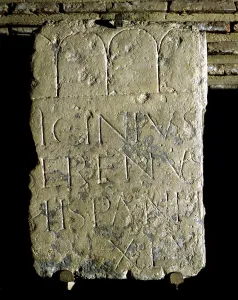 ICINIVSS
ERENNVS
HISPANI
XI